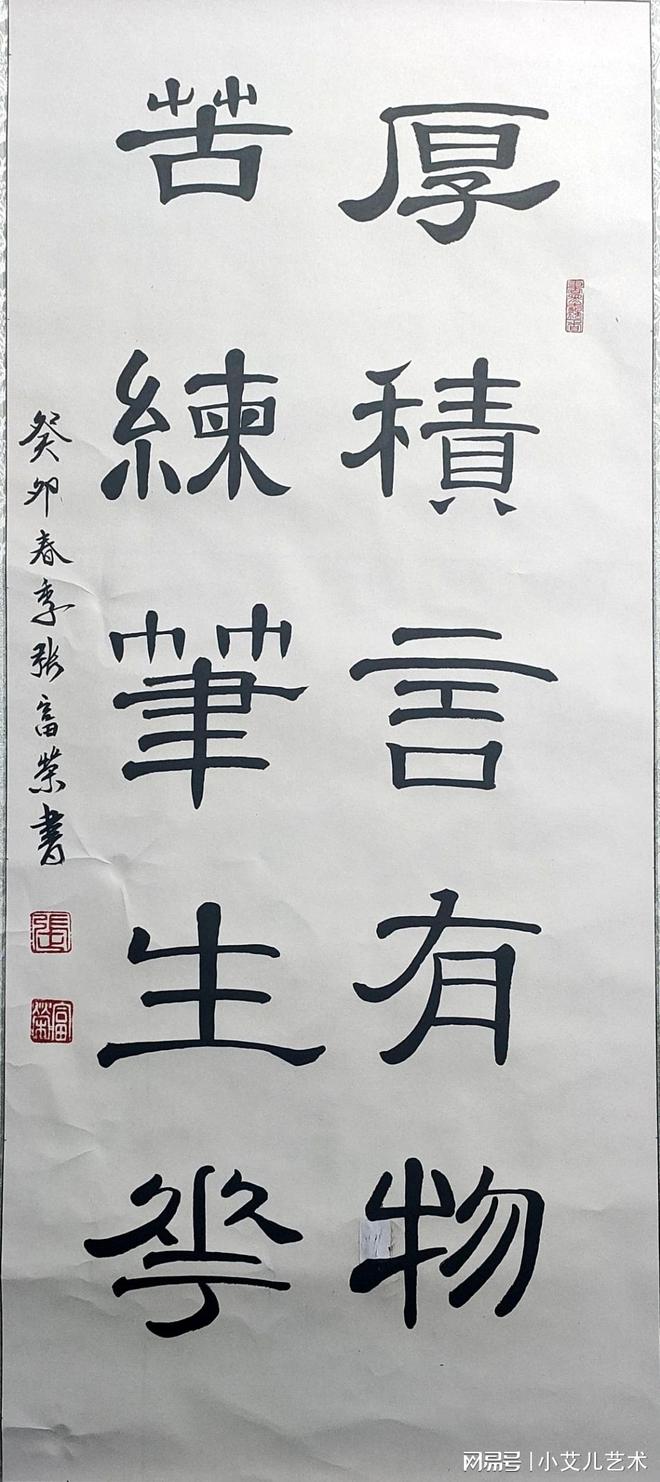 厚積言有物
苦練筆生花
癸卯春季張富榮書
張
富榮
网易号 | 小艾儿艺术